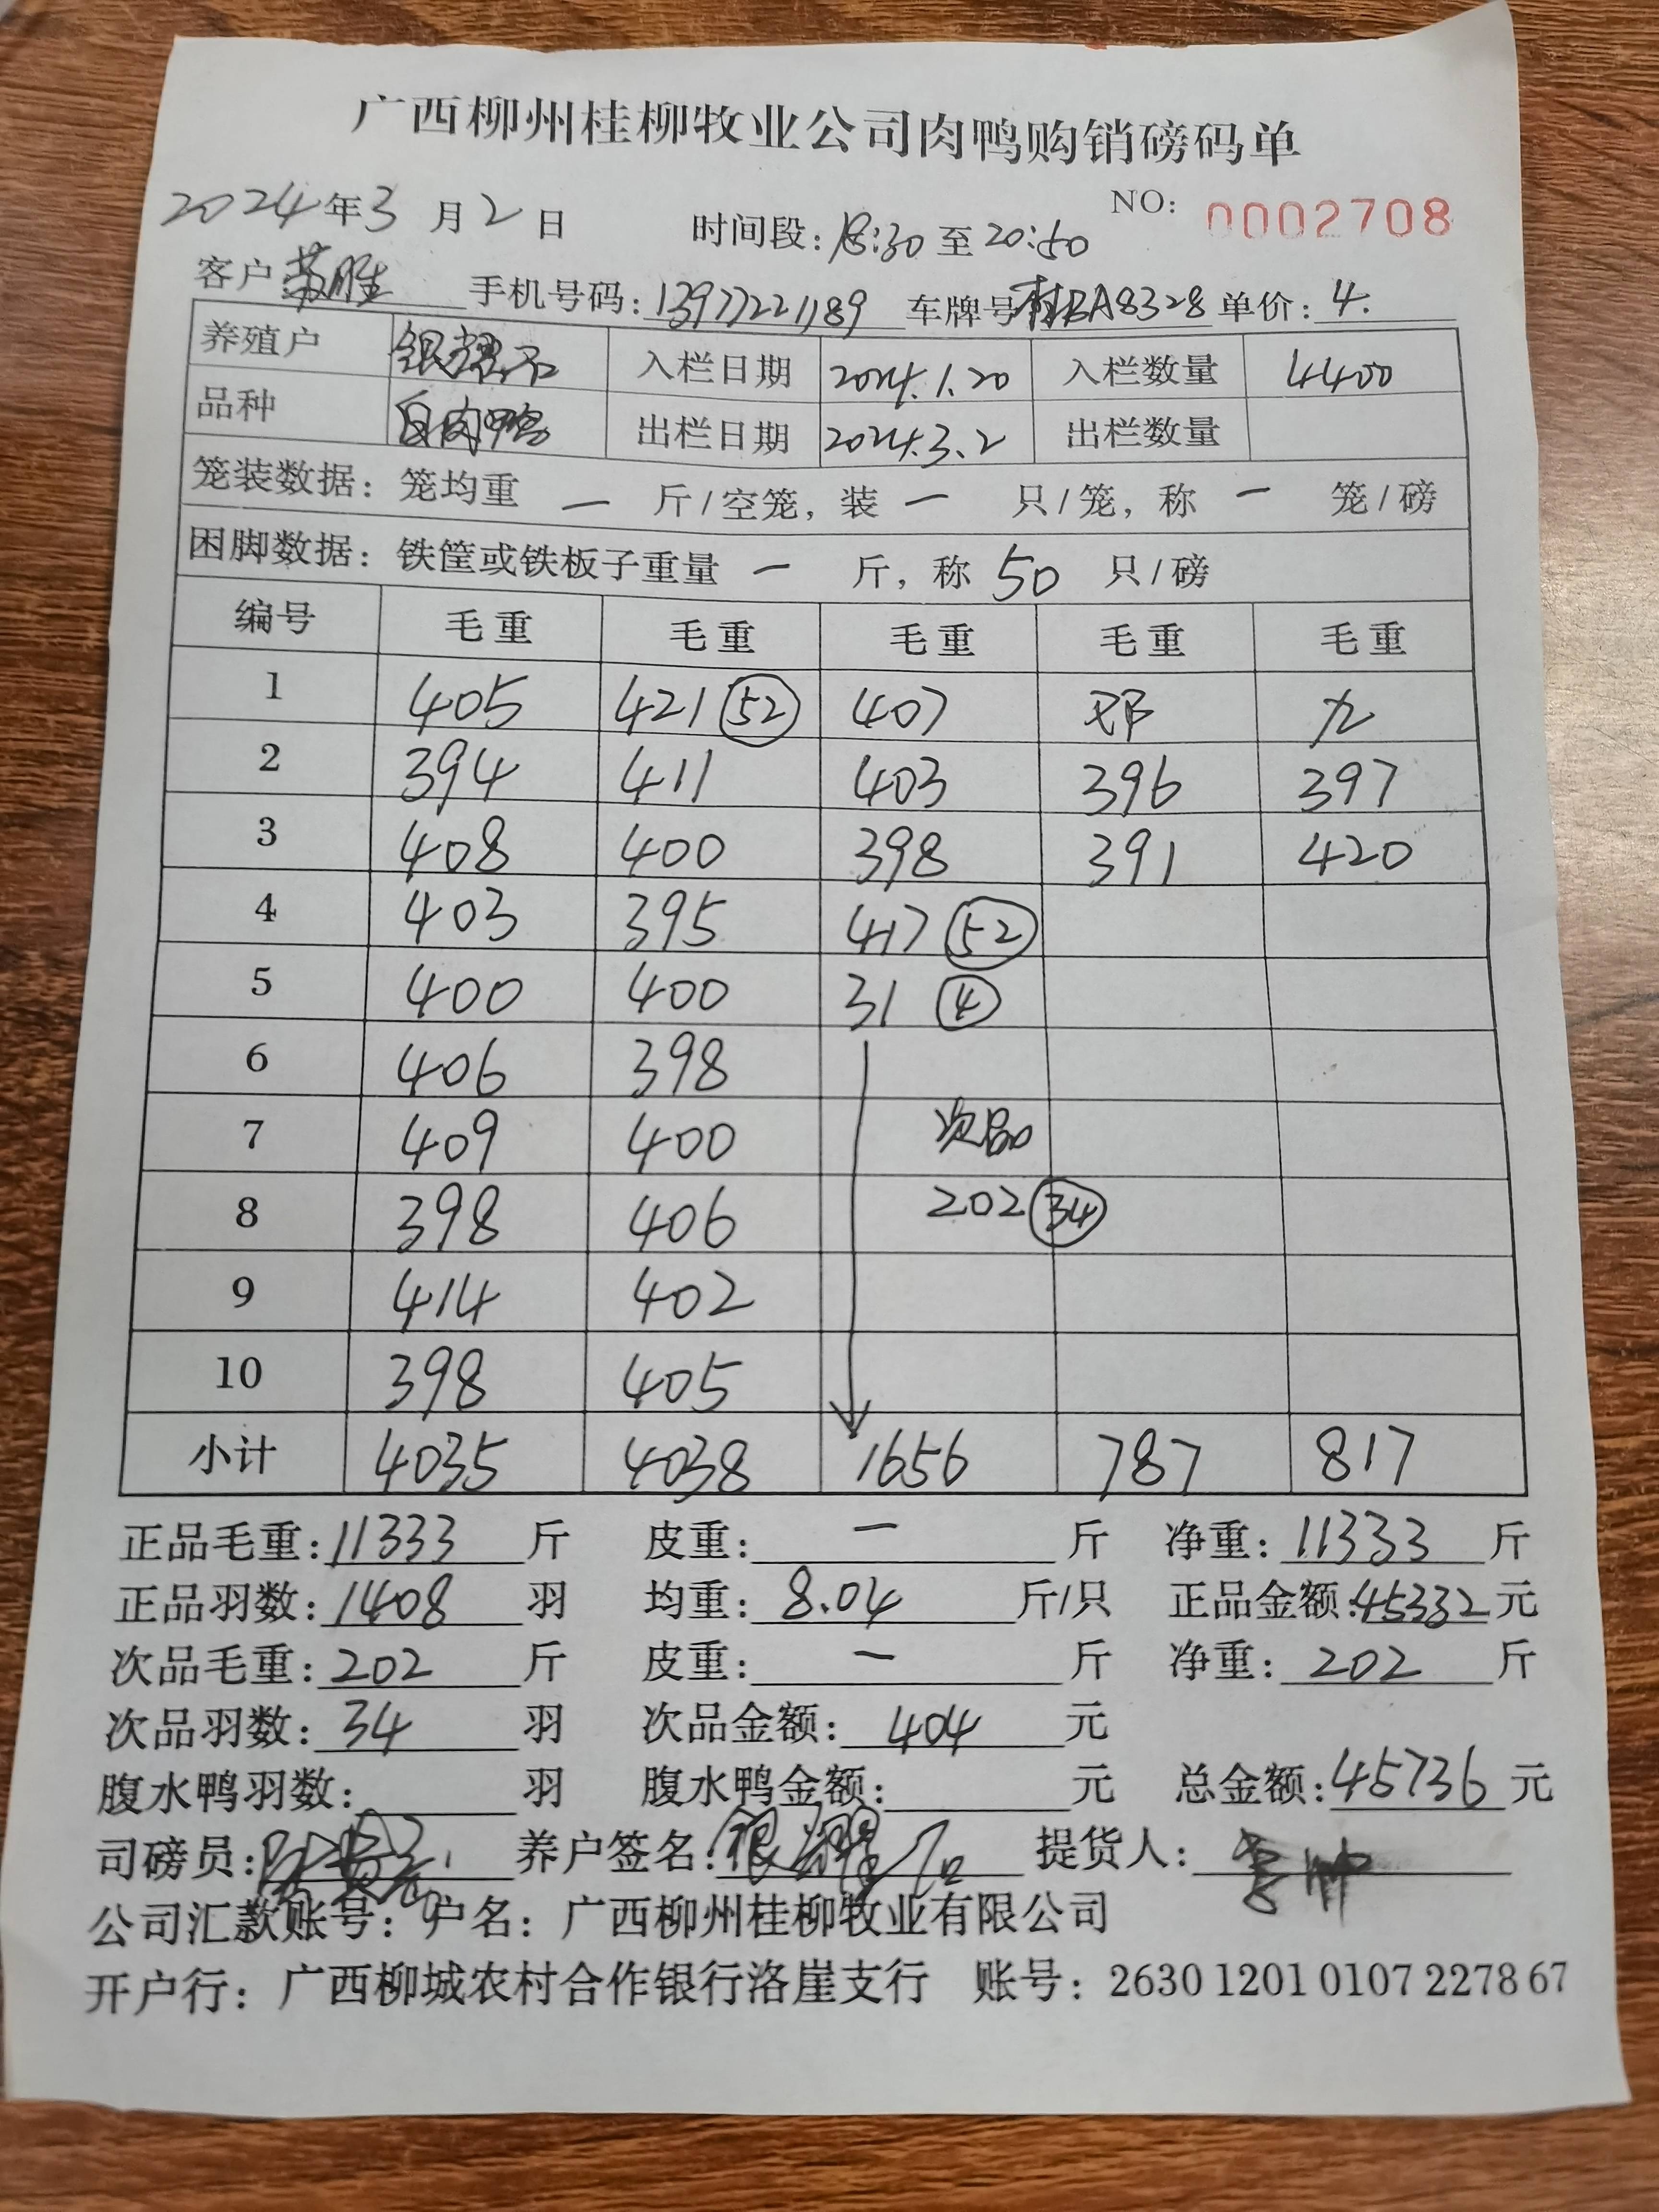 广西柳州桂柳牧业公司肉鸭购销磅码单
2024年3月2日 时间段:18:30至20:50 NO: 0002708
客户 苏胜 手机号码:13977221189 车牌号桂BA8328 单价:4.
养殖户 银 入栏日期 2024.1.20 入栏数量 4400
品种 白肉鸭 出栏日期 2024.3.2 出栏数量
笼装数据:笼均重 一 斤/空笼,装 一 只/笼,称 一 笼/磅
困脚数据:铁筐或铁板子重量 一 斤,称 50 只/磅
编号 毛重 毛重 毛重 毛重 毛重
1 405 421 52 407 邓 九
2 394 411 403 396 397
3 408 400 398 391 420
4 403 395 417 52
5 400 400 31 4
6 406 398
7 409 400 次品
8 398 406 202 34
9 414 402
10 398 405
小计 4035 4038 1656 787 817
正品毛重:11333 斤 皮重: 一 斤 净重:11333 斤
正品羽数:1408 羽 均重:8.04 斤/只 正品金额:45332元
次品毛重:202 斤 皮重: 一 斤 净重:202 斤
次品羽数:34 羽 次品金额:404 元
腹水鸭羽数: 羽 腹水鸭金额: 元 总金额:45736元
司磅员: 养户签名:银 提货人:李帅
公司汇款账号:户名:广西柳州桂柳牧业有限公司
开户行:广西柳城农村合作银行洛崖支行 账号:2630 1201 0107 2278 67